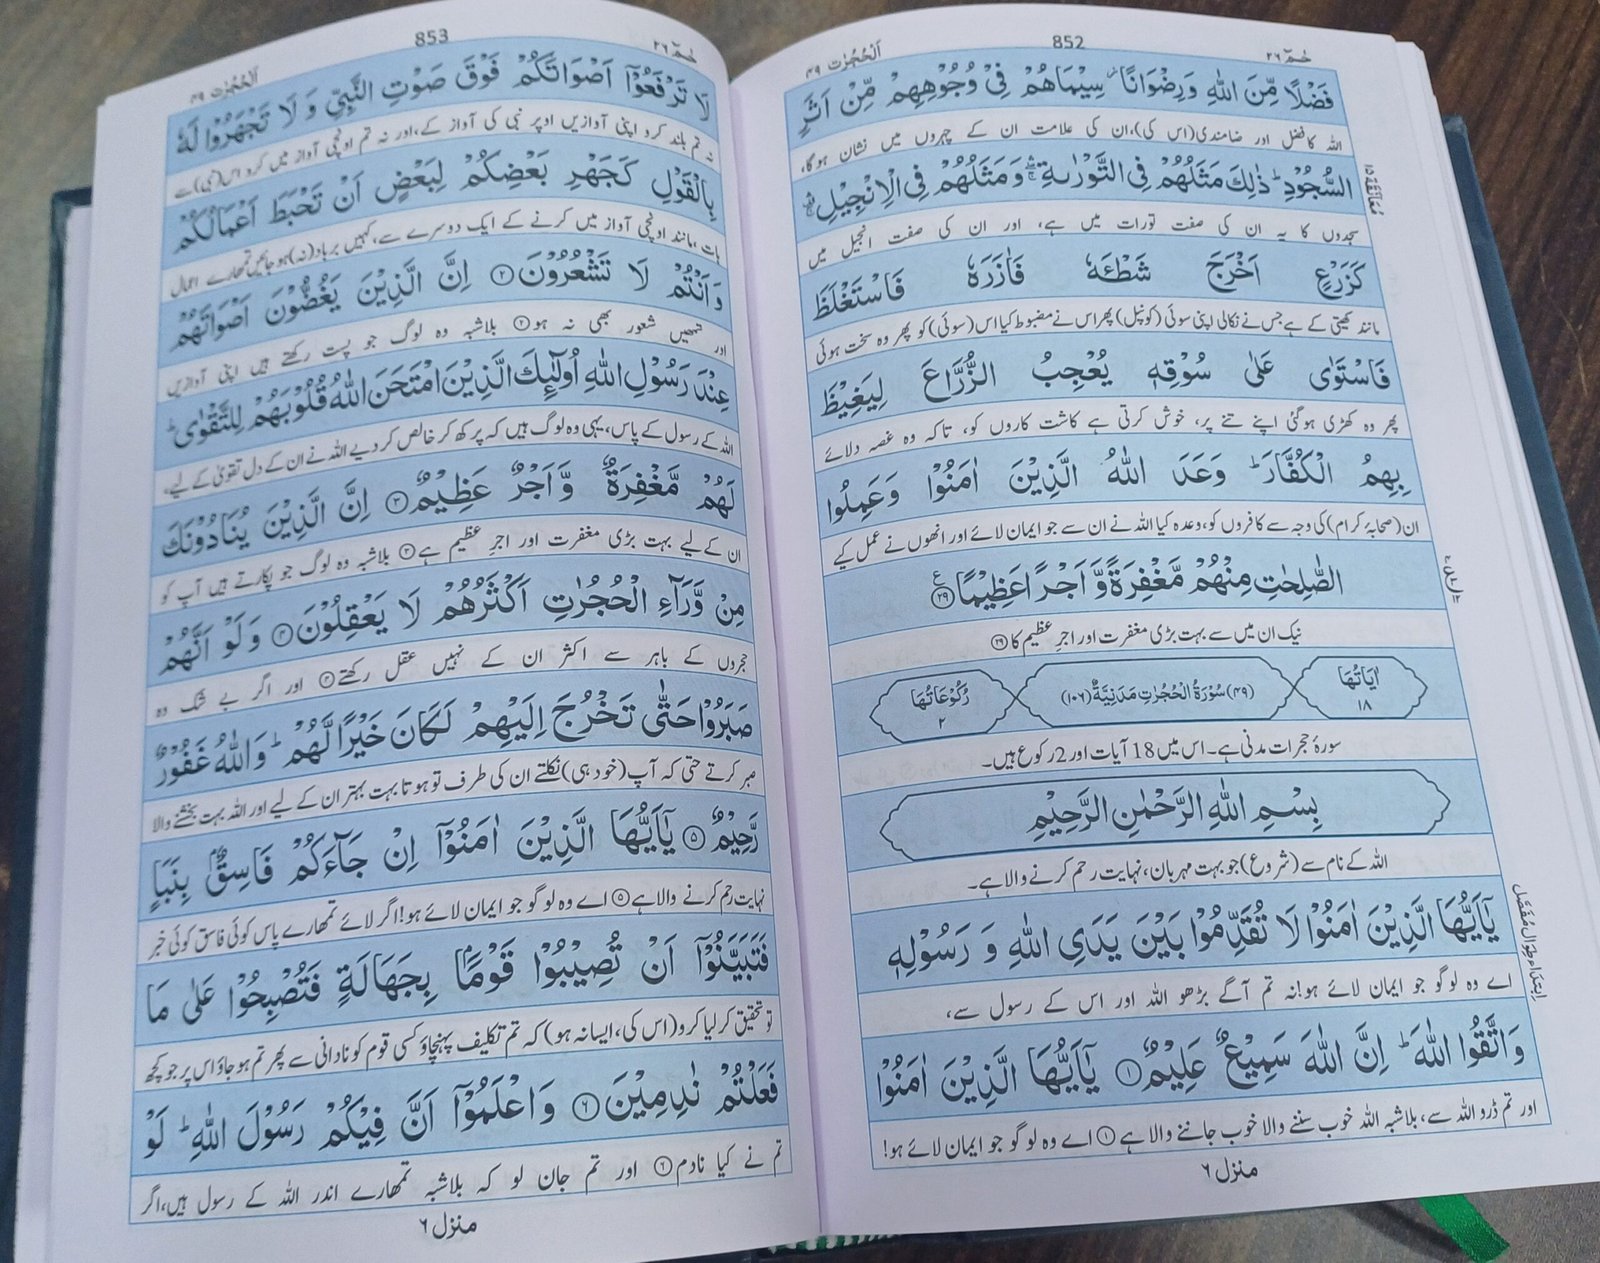 حٰمٓ ٢٦
852
اَلْحُجُرٰت ٤٩
فَضْلًا مِّنَ اللّٰهِ وَرِضْوَانًا ۡ سِيْمَاهُمْ فِيْ وُجُوْهِهِمْ مِّنْ اَثَرِ
اللہ کا فضل اور رضامندی (اس کی)، ان کی علامت ان کے چہروں میں نشان ہوگا،
السُّجُوْدِ ؕ ذٰلِكَ مَثَلُهُمْ فِي التَّوْرٰىةِ ۛۖۚ وَمَثَلُهُمْ فِي الْاِنْجِيْلِ ۛۚ
مُعَانَقَة ١٥
سجدوں کا یہ ان کی صفت تورات میں ہے، اور ان کی صفت انجیل میں
كَزَرْعٍ اَخْرَجَ شَطْـَٔهٗ فَاٰزَرَهٗ فَاسْتَغْلَظَ
مانند کھیتی کے ہے جس نے نکالی اپنی سوئی (کونپل) پھر اس نے مضبوط کیا اس (سوئی) کو پھر وہ سخت ہوئی
فَاسْتَوٰى عَلٰى سُوْقِهٖ يُعْجِبُ الزُّرَّاعَ لِيَغِيْظَ
پھر وہ کھڑی ہوگئی اپنے تنے پر، خوش کرتی ہے کاشت کاروں کو، تاکہ وہ غصہ دلائے
بِهِمُ الْكُفَّارَ ؕ وَعَدَ اللّٰهُ الَّذِيْنَ اٰمَنُوْا وَعَمِلُوا
ان (صحابۂ کرام) کی وجہ سے کافروں کو، وعدہ کیا اللہ نے ان سے جو ایمان لائے اور انھوں نے عمل کیے
الصّٰلِحٰتِ مِنْهُمْ مَّغْفِرَةً وَّاَجْرًا عَظِيْمًا ۝٢٩ ع
نیک ان میں سے بہت بڑی مغفرت اور اجر عظیم کا ۝٢٩
اٰيَاتُهَا ١٨
(٤٩) سُوْرَةُ الْحُجُرٰتِ مَدَنِيَّةٌ (١٠٦)
رُكُوْعَاتُهَا ٢
سورۂ حجرات مدنی ہے۔ اس میں 18 آیات اور 2 رکوع ہیں۔
بِسْمِ اللّٰهِ الرَّحْمٰنِ الرَّحِيْمِ
اللہ کے نام سے (شروع) جو بہت مہربان، نہایت رحم کرنے والا ہے۔
يٰٓاَيُّهَا الَّذِيْنَ اٰمَنُوْا لَا تُقَدِّمُوْا بَيْنَ يَدَيِ اللّٰهِ وَ رَسُوْلِهٖ
اِبتداء طِوال مُفَصَّل
اے وہ لوگو جو ایمان لائے ہو! نہ تم آگے بڑھو اللہ اور اس کے رسول سے،
وَاتَّقُوا اللّٰهَ ؕ اِنَّ اللّٰهَ سَمِيْعٌ عَلِيْمٌ ۝١ يٰٓاَيُّهَا الَّذِيْنَ اٰمَنُوْا
اور تم ڈرو اللہ سے، بلاشبہ اللہ خوب سننے والا خوب جاننے والا ہے ۝١ اے وہ لوگو جو ایمان لائے ہو!
منزل ٦
حٰمٓ ٢٦
853
اَلْحُجُرٰت ٤٩
لَا تَرْفَعُوْٓا اَصْوَاتَكُمْ فَوْقَ صَوْتِ النَّبِيِّ وَ لَا تَجْهَرُوْا لَهٗ
نہ تم بلند کرو اپنی آوازیں اوپر نبی کی آواز کے، اور نہ تم اونچی آواز میں کرو اس (نبی) سے
بِالْقَوْلِ كَجَهْرِ بَعْضِكُمْ لِبَعْضٍ اَنْ تَحْبَطَ اَعْمَالُكُمْ
بات، مانند اونچی آواز میں کرنے کے ایک دوسرے سے، کہیں برباد (نہ) ہو جائیں تمھارے اعمال
وَاَنْتُمْ لَا تَشْعُرُوْنَ ۝٢ اِنَّ الَّذِيْنَ يَغُضُّوْنَ اَصْوَاتَهُمْ
اور تمھیں شعور بھی نہ ہو ۝٢ بلاشبہ وہ لوگ جو پست رکھتے ہیں اپنی آوازیں
عِنْدَ رَسُوْلِ اللّٰهِ اُولٰٓئِكَ الَّذِيْنَ امْتَحَنَ اللّٰهُ قُلُوْبَهُمْ لِلتَّقْوٰى ؕ
اللہ کے رسول کے پاس، یہی وہ لوگ ہیں کہ پرکھ کر خالص کر دیے اللہ نے ان کے دل تقویٰ کے لیے،
لَهُمْ مَّغْفِرَةٌ وَّاَجْرٌ عَظِيْمٌ ۝٣ اِنَّ الَّذِيْنَ يُنَادُوْنَكَ
ان کے لیے بہت بڑی مغفرت اور اجر عظیم ہے ۝٣ بلاشبہ وہ لوگ جو پکارتے ہیں آپ کو
مِنْ وَّرَآءِ الْحُجُرٰتِ اَكْثَرُهُمْ لَا يَعْقِلُوْنَ ۝٤ وَلَوْ اَنَّهُمْ
حجروں کے باہر سے اکثر ان کے نہیں عقل رکھتے ۝٤ اور اگر بے شک وہ
صَبَرُوْا حَتّٰى تَخْرُجَ اِلَيْهِمْ لَكَانَ خَيْرًا لَّهُمْ ؕ وَاللّٰهُ غَفُوْرٌ
صبر کرتے حتی کہ آپ (خود ہی) نکلتے ان کی طرف تو ہوتا بہت بہتر ان کے لیے اور اللہ بہت بخشنے والا
رَّحِيْمٌ ۝٥ يٰٓاَيُّهَا الَّذِيْنَ اٰمَنُوْٓا اِنْ جَآءَكُمْ فَاسِقٌۢ بِنَبَاٍ
نہایت رحم کرنے والا ہے ۝٥ اے وہ لوگو جو ایمان لائے ہو! اگر لائے تمھارے پاس کوئی فاسق کوئی خبر
فَتَبَيَّنُوْٓا اَنْ تُصِيْبُوْا قَوْمًۢا بِجَهَالَةٍ فَتُصْبِحُوْا عَلٰى مَا
تو تحقیق کر لیا کرو (اس کی، ایسا نہ ہو) کہ تم تکلیف پہنچاؤ کسی قوم کو نادانی سے پھر تم ہو جاؤ اس پر جو کچھ
فَعَلْتُمْ نٰدِمِيْنَ ۝٦ وَاعْلَمُوْٓا اَنَّ فِيْكُمْ رَسُوْلَ اللّٰهِ ؕ لَوْ
تم نے کیا نادم ۝٦ اور تم جان لو کہ بلاشبہ تمھارے اندر اللہ کے رسول ہیں، اگر
منزل ٦